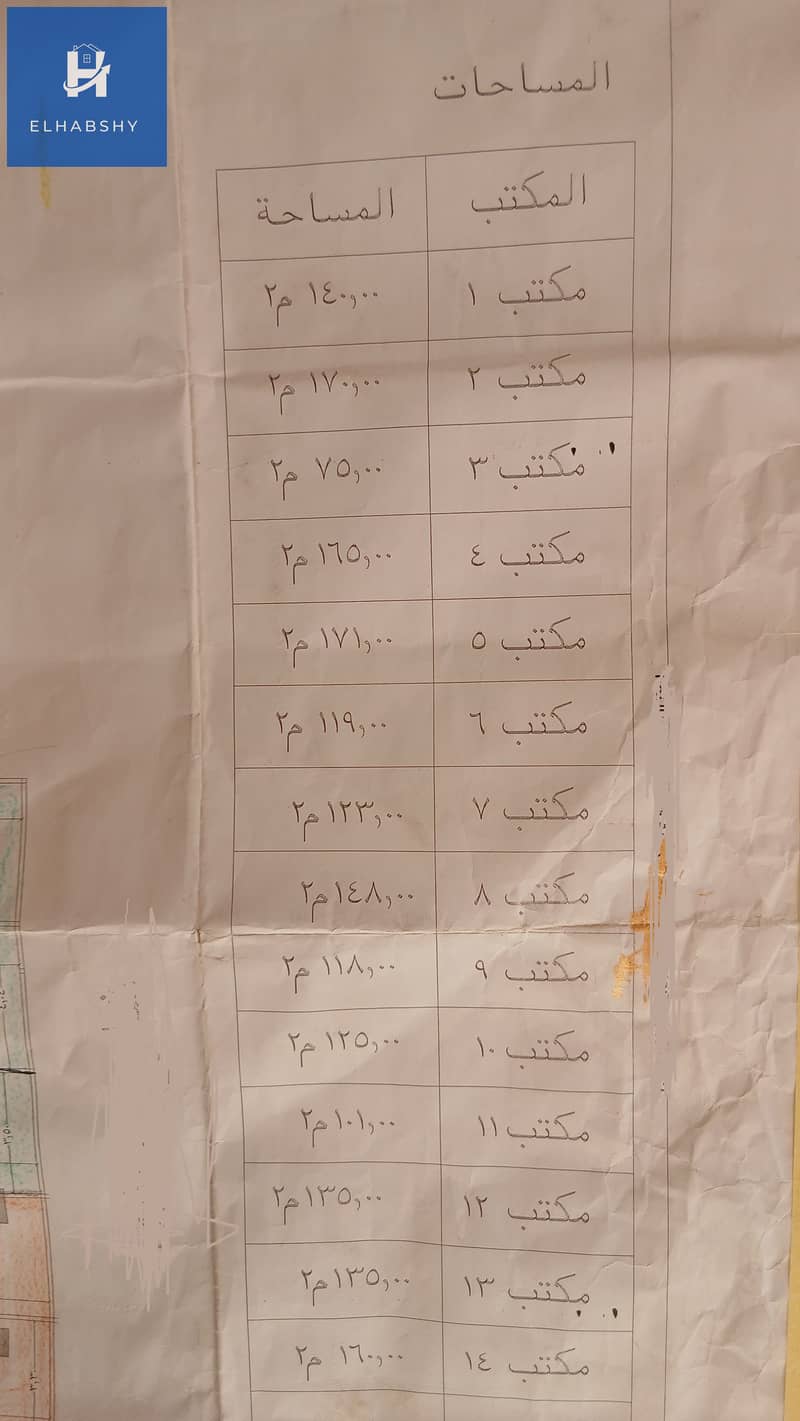 ELHABSHY
المساحات
المكتب المساحة
مكتب ١ ١٤٠,٠٠ م٢
مكتب ٢ ١٧٠,٠٠ م٢
مكتب ٣ ٧٥,٠٠ م٢
مكتب ٤ ١٦٥,٠٠ م٢
مكتب ٥ ١٧١,٠٠ م٢
مكتب ٦ ١١٩,٠٠ م٢
مكتب ٧ ١٢٣,٠٠ م٢
مكتب ٨ ١٤٨,٠٠ م٢
مكتب ٩ ١١٨,٠٠ م٢
مكتب ١٠ ١٢٥,٠٠ م٢
مكتب ١١ ١٠١,٠٠ م٢
مكتب ١٢ ١٣٥,٠٠ م٢
مكتب ١٣ ١٣٥,٠٠ م٢
مكتب ١٤ ١٦٠,٠٠ م٢